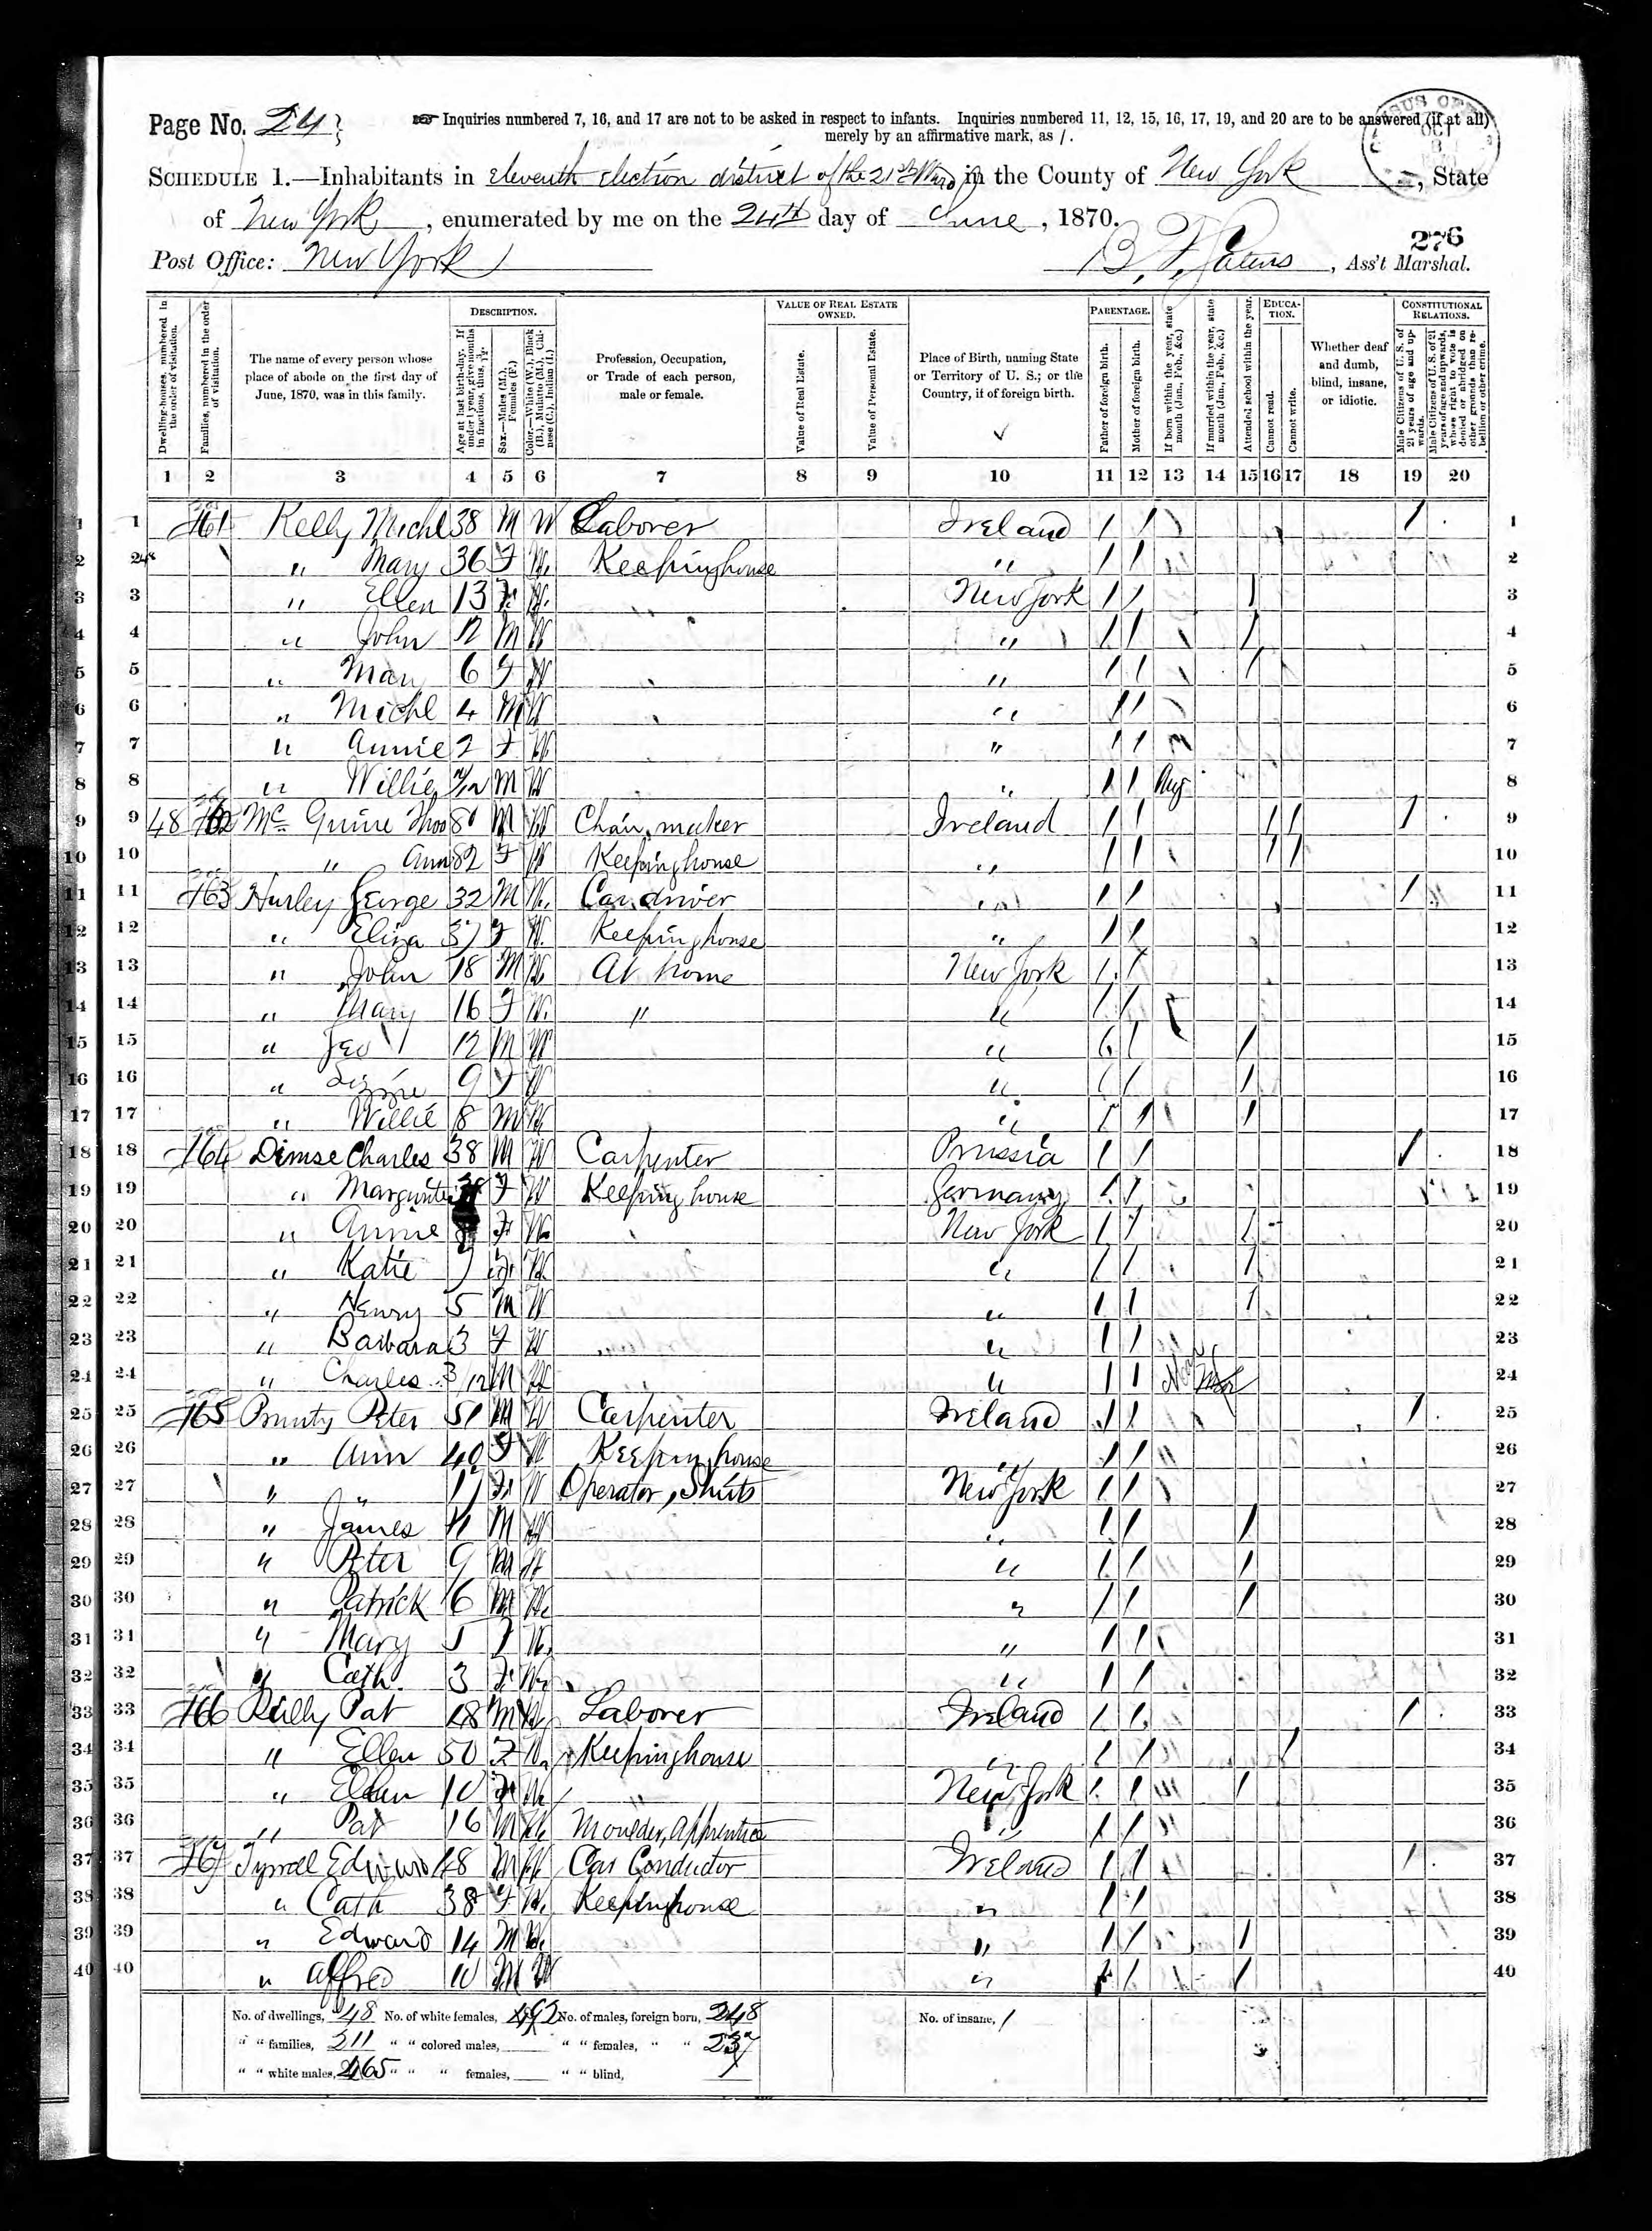 Page No. 24
Inquiries numbered 7, 16, and 17 are not to be asked in respect to infants. Inquiries numbered 11, 12, 15, 16, 17, 19, and 20 are to be answered (if at all)
merely by an affirmative mark, as /.
SCHEDULE 1.—Inhabitants in eleventh election district of the 21st Ward in the County of New York, State
of New York, enumerated by me on the 24th day of June, 1870.
276
Post Office: New York B. F. , Ass't Marshal.
Dwelling-houses, numbered in the order of visitation.
Families, numbered in the order of visitation.
The name of every person whose place of abode on the first day of June, 1870, was in this family.
DESCRIPTION.
Age at last birth-day. If under 1 year, give months in fractions, thus, 3/12.
Sex.—Males (M.), Females (F.)
Color.—White (W.), Black (B.), Mulatto (M.), Chinese (C.), Indian (I.)
Profession, Occupation, or Trade of each person, male or female.
VALUE OF REAL ESTATE OWNED.
Value of Real Estate.
Value of Personal Estate.
Place of Birth, naming State or Territory of U. S.; or the Country, if of foreign birth.
PARENTAGE.
Father of foreign birth.
Mother of foreign birth.
If born within the year, state month (Jan., Feb., &c.)
If married within the year, state month (Jan., Feb., &c.)
Attended school within the year.
EDUCATION.
Cannot read.
Cannot write.
Whether deaf and dumb, blind, insane, or idiotic.
CONSTITUTIONAL RELATIONS.
Male Citizens of U. S. of 21 years of age and upwards.
Male Citizens of U. S. of 21 years of age and upwards, whose right to vote is denied or abridged on other grounds than rebellion or other crime.
1 2 3 4 5 6 7 8 9 10 11 12 13 14 15 16 17 18 19 20
1 161 Kelly Michl 38 M W Laborer Ireland / / / 1
2 " Mary 36 F W Keepinghouse " / / 2
3 " Ellen 13 F W New York / / / 3
4 " John 12 M W " / / / 4
5 " Mary 6 F W " / / / 5
6 " Michl 4 M W " / / 6
7 " Annie 2 F W " / / 7
8 " Willie M W " / / Aug 8
9 48 162 Mc Guire Thos 80 M W Chair maker Ireland / / / / / 9
10 " Ann 82 F W Keepinghouse " / / / / 10
11 163 Hurley George 32 M W Car driver " / / / 11
12 " Eliza 37 F W Keepinghouse " / / 12
13 " John 18 M W At home New York / / 13
14 " Mary 16 F W " " / / 14
15 " Geo 12 M W " / / / 15
16 " Lizzie 9 F W " / / / 16
17 " Willie 8 M W " / / / 17
18 164 Dimse Charles 38 M W Carpenter Prussia / / / 18
19 " F W Keeping house Germany / / 19
20 " Annie 8 F W New York / / / 20
21 " Katie 7 F W " / / / 21
22 " Henry 5 M W " / / / 22
23 " Barbara 3 F W " / / 23
24 " Charles 3/12 M W " / / 24
25 165 Peter 51 M W Carpenter Ireland / / / 25
26 " Ann 40 F W Keepinghouse " / / 26
27 " " 17 F W Operator, Shirts New York / / 27
28 " James 11 M W " / / / 28
29 " Peter 9 M W " / / / 29
30 " Patrick 6 M W " / / / 30
31 " Mary 5 F W " / / 31
32 " Cath. 3 F W " / / 32
33 166 Reilly Pat 48 M W Laborer Ireland / / / 33
34 " Ellen 50 F W Keepinghouse " / / / 34
35 " Ellen 10 F W New York / / / 35
36 " Pat 16 M W Moulder, Apprentice " / / 36
37 167 Tyrrell Edward 48 M W Car Conductor Ireland / / / 37
38 " Cath 38 F W Keepinghouse " / / 38
39 " Edward 14 M W " / / / 39
40 " Alfred 10 M W " / / / 40
No. of dwellings, 48 No. of white females, No. of males, foreign born, 248 No. of insane, 1
" " families, 211 " " colored males, " " females, " " 237
" " white males, 465 " " " females, " " blind,